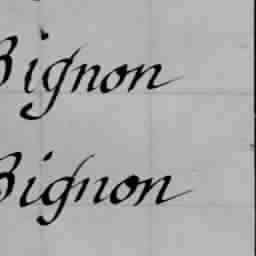 Bignon
Bignon